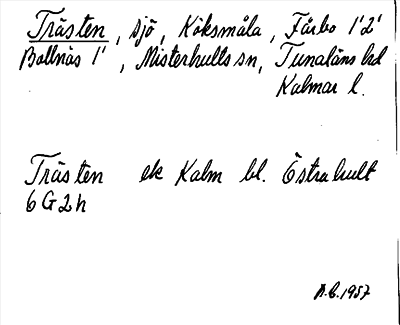 Trästen, sjö, Köksmåla, Fårbo 1'2'
Bollnäs 1', Misterhults sn, Tunaläns hd
Kalmar l.
Trästen ek Kalm bl. Östrahult
6G2h
B.E. 1957